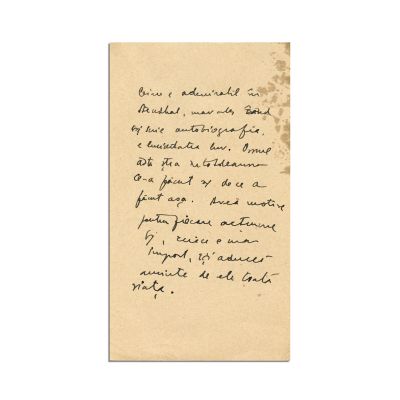 Ceea ce e admirabil în
Stendhal, mai ales când
își scrie autobiografia,
e luciditatea lui. Omul
ăsta știa totdeauna
ce-a făcut și de ce a
făcut așa. Avea motive
pentru fiecare acțiune
și, ceea ce e mai
import, își aducea
aminte de ele toată
viața.